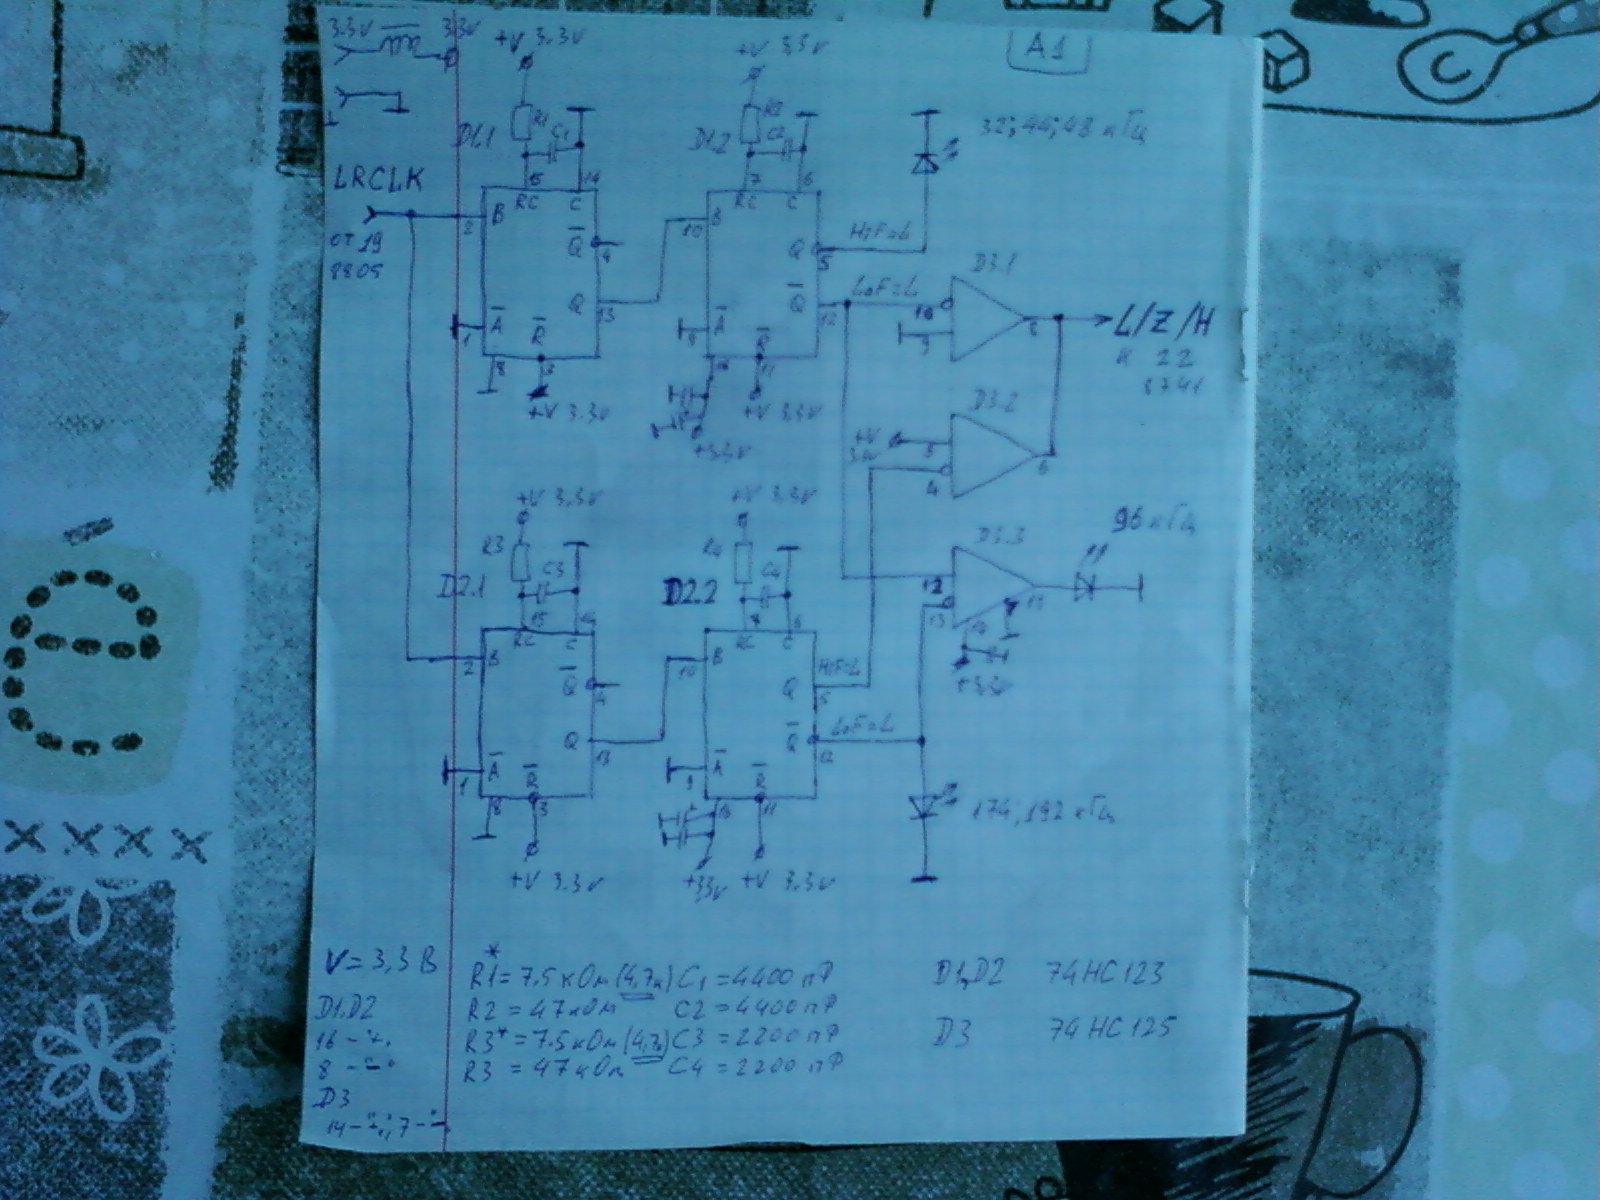 3.3V 3.3V
+V 3.3V
+V 3,3V
A1
R1
C1
D1.1
R2
C2
D1.2
32; 44; 48 кГц
LRCLK
от 19
8805
15
14
RC
C
2
B
Q
4
Q
13
A
1
R
8
3
+V 3.3V
7
6
RC
C
10
B
Q
5
H2F=L
Q
12
LoF=L
A
9
R
16
11
+V 3.3V
+3.3V
D3.1
10
9
8
L/Z/H
к 22
8741
D3.2
+V
5
4
6
+V 3.3V
+V 3.3V
R3
C3
D2.1
R4
C4
D2.2
D3.3
96 кГц
12
13
11
14
+3.3V
15
RC
C
2
B
Q
4
Q
13
A
1
R
8
3
+V 3.3V
7
6
RC
C
10
B
Q
5
HiF=L
Q
12
LoF=L
A
9
R
16
11
+3.3V
+V 3.3V
174; 192 кГц
V = 3,3 В
R1* = 7.5 кОм (4,7к) C1 = 4400 пФ
R2 = 47 кОм C2 = 4400 пФ
R3* = 7.5 кОм (4,7к) C3 = 2200 пФ
R3 = 47 кОм C4 = 2200 пФ
D1,D2 74HC123
D3 74HC125
D1,D2
16 - "+"
8 - "-"
D3
14 - "+", 7 - "-"